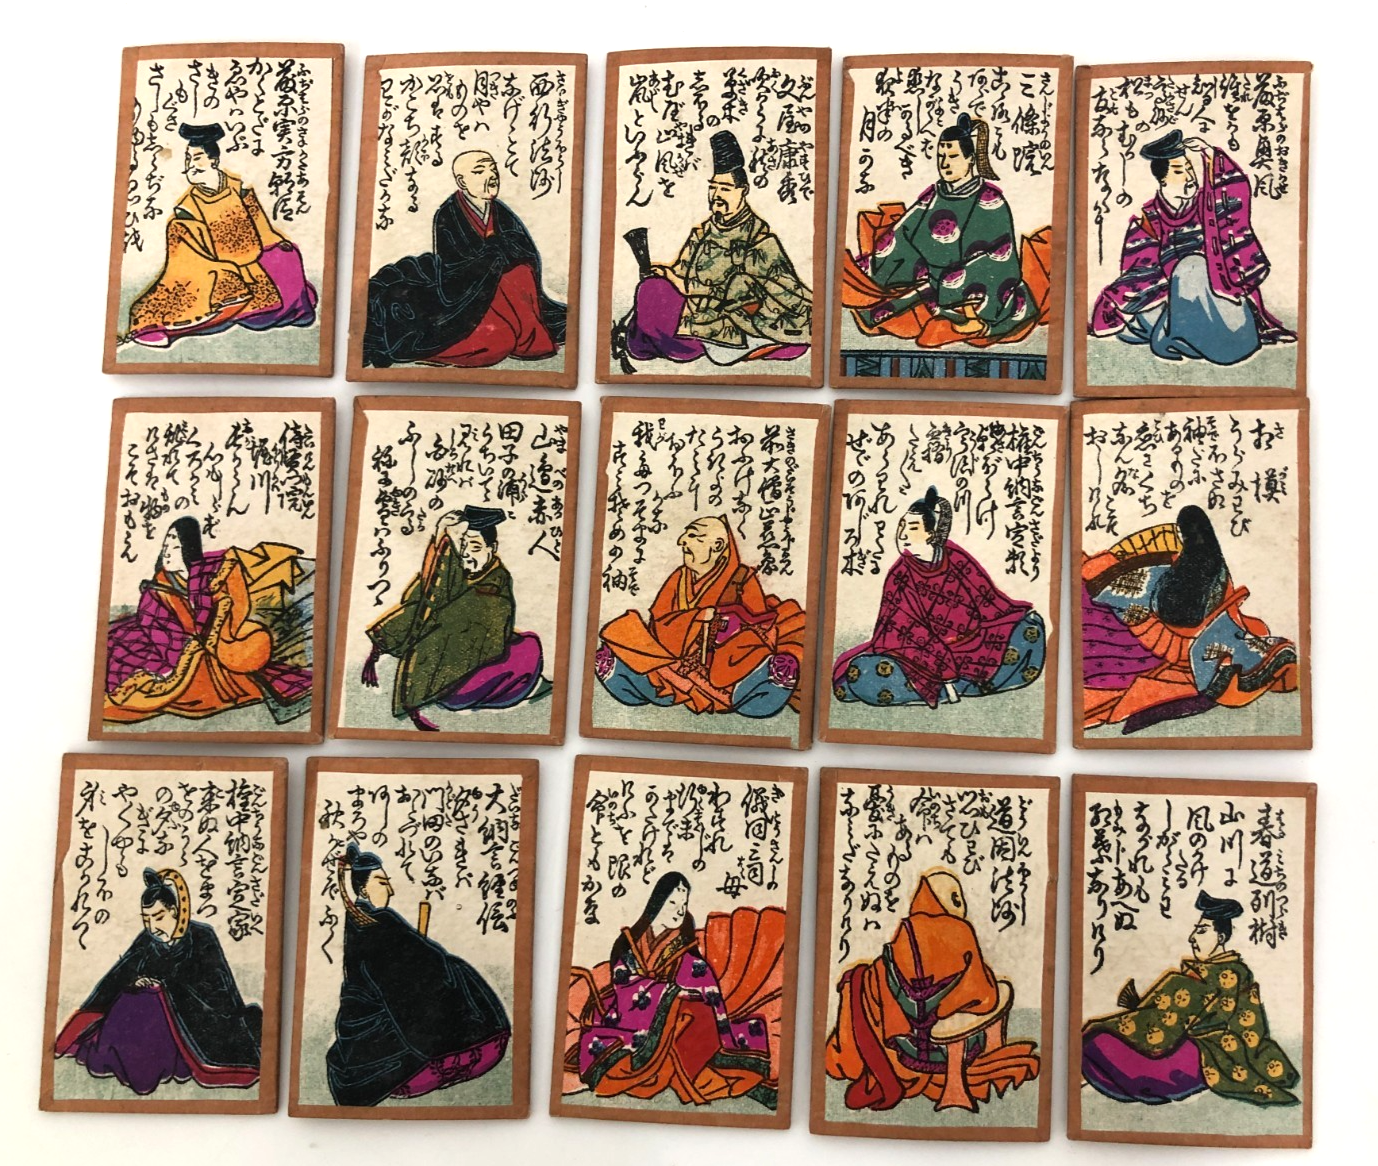 藤原実方朝臣
かくとだに
ゑやはいぶ
きの
さしも
ぐさ
さしもしらじな
西行法師
なげゝとて
月やハ
ものを
おもハする
かこち顔なる
わがなみだかな
文屋康秀
吹からに秋の
草木の
しをるれば
むべ山風を
嵐といふらん
三條院
こゝろにも
あらで
うき世に
ながらへば
恋しかるべき
夜半の
月かな
藤原興風
誰をかも
しる人に
せん
高砂の
松もむかしの
友ならなくに
待賢門院
堀川
長からん
心もしらず
くろかみの
みだれて
けさハ物を
こそおもへ
山邊赤人
田子の浦に
うちいでて
みれバ
白妙の
ふじの
雪ハふりつゝ
前大僧正慈圓
おふけなく
うき世の
たみに
おほふ
かな
我たつそまに
すみぞめの袖
権中納言定頼
朝ぼらけ
宇治の川
霧
あらはれわたる
せゞのあじろ木
相模
うらみわび
ほさぬ
袖だに
あるものを
恋にくち
なん名こそ
おしけれ
権中納言定家
来ぬ人をまつ
ほのうらの
夕なぎに
やくや
もしほの
身もこがれつゝ
大納言経信
夕されバ
門田のいなバ
おとづれて
あしの
まろやに
秋かぜぞふく
儀同三司母
わすれじの
行末
までハ
かたけれど
けふを限の
命ともがな
道因法師
おもひわび
さても
命ハ
あるものを
憂にたえぬハ
なみだなりけり
春道列樹
山川に
風のかけたる
しがらみハ
ながれも
あへぬ
紅葉なりけり